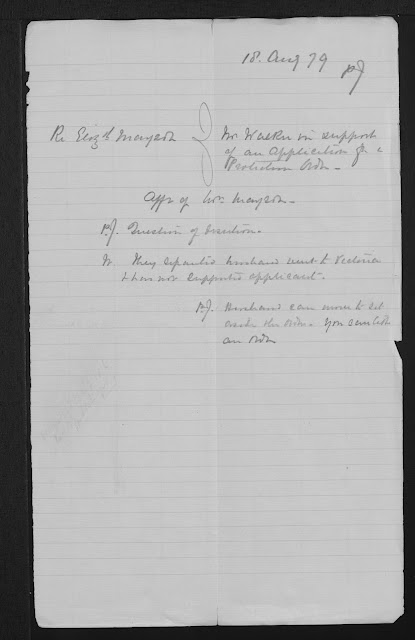 18. Aug 79
P.J
Re Eliz.th Mayson
Mr Walker in support
of an Application for a
Protection Order –
Afft of Mrs. Mayson –
P.J. Question of desertion.
W. They separated husband went to Victoria
& has not supported applicant.
P.J. Husband can move to set
aside the order. You can take
an order